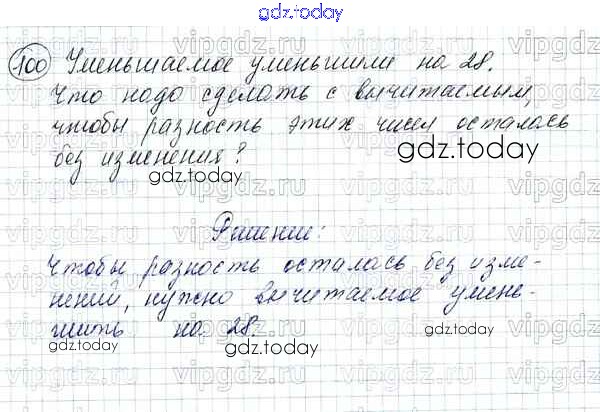 gdz.today
100 Уменьшаемое уменьшили на 28.
Что надо сделать с вычитаемым,
чтобы разность этих чисел осталась
без изменения?
gdz.today
gdz.today
Решение:
Чтобы разность осталась без изме-
нений, нужно вычитаемое умень-
шить на 28.
gdz.today
gdz.today
gdz.today